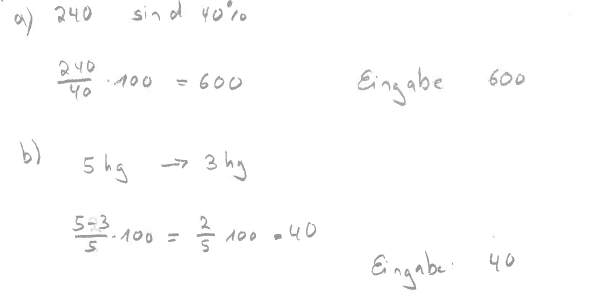 a) 240 sind 40%
240/40 · 100 = 600 Eingabe 600
b) 5 hg → 3 hg
5-3/5 · 100 = 2/5 100 = 40
Eingabe: 40